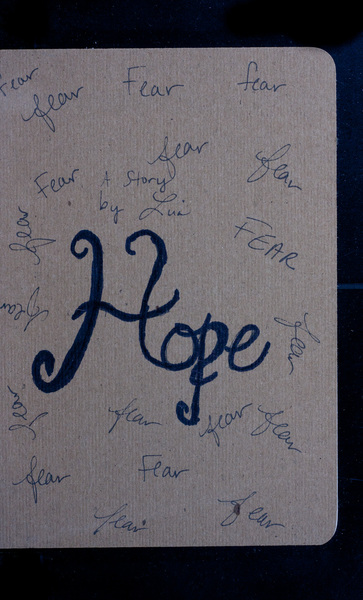 Fear
fear
Fear
fear
fear
fear
Fear
A Story
by Lia
fear
FEAR
Hope
fear
fear
fear
fear
fear
fear
fear
Fear
fear
fear